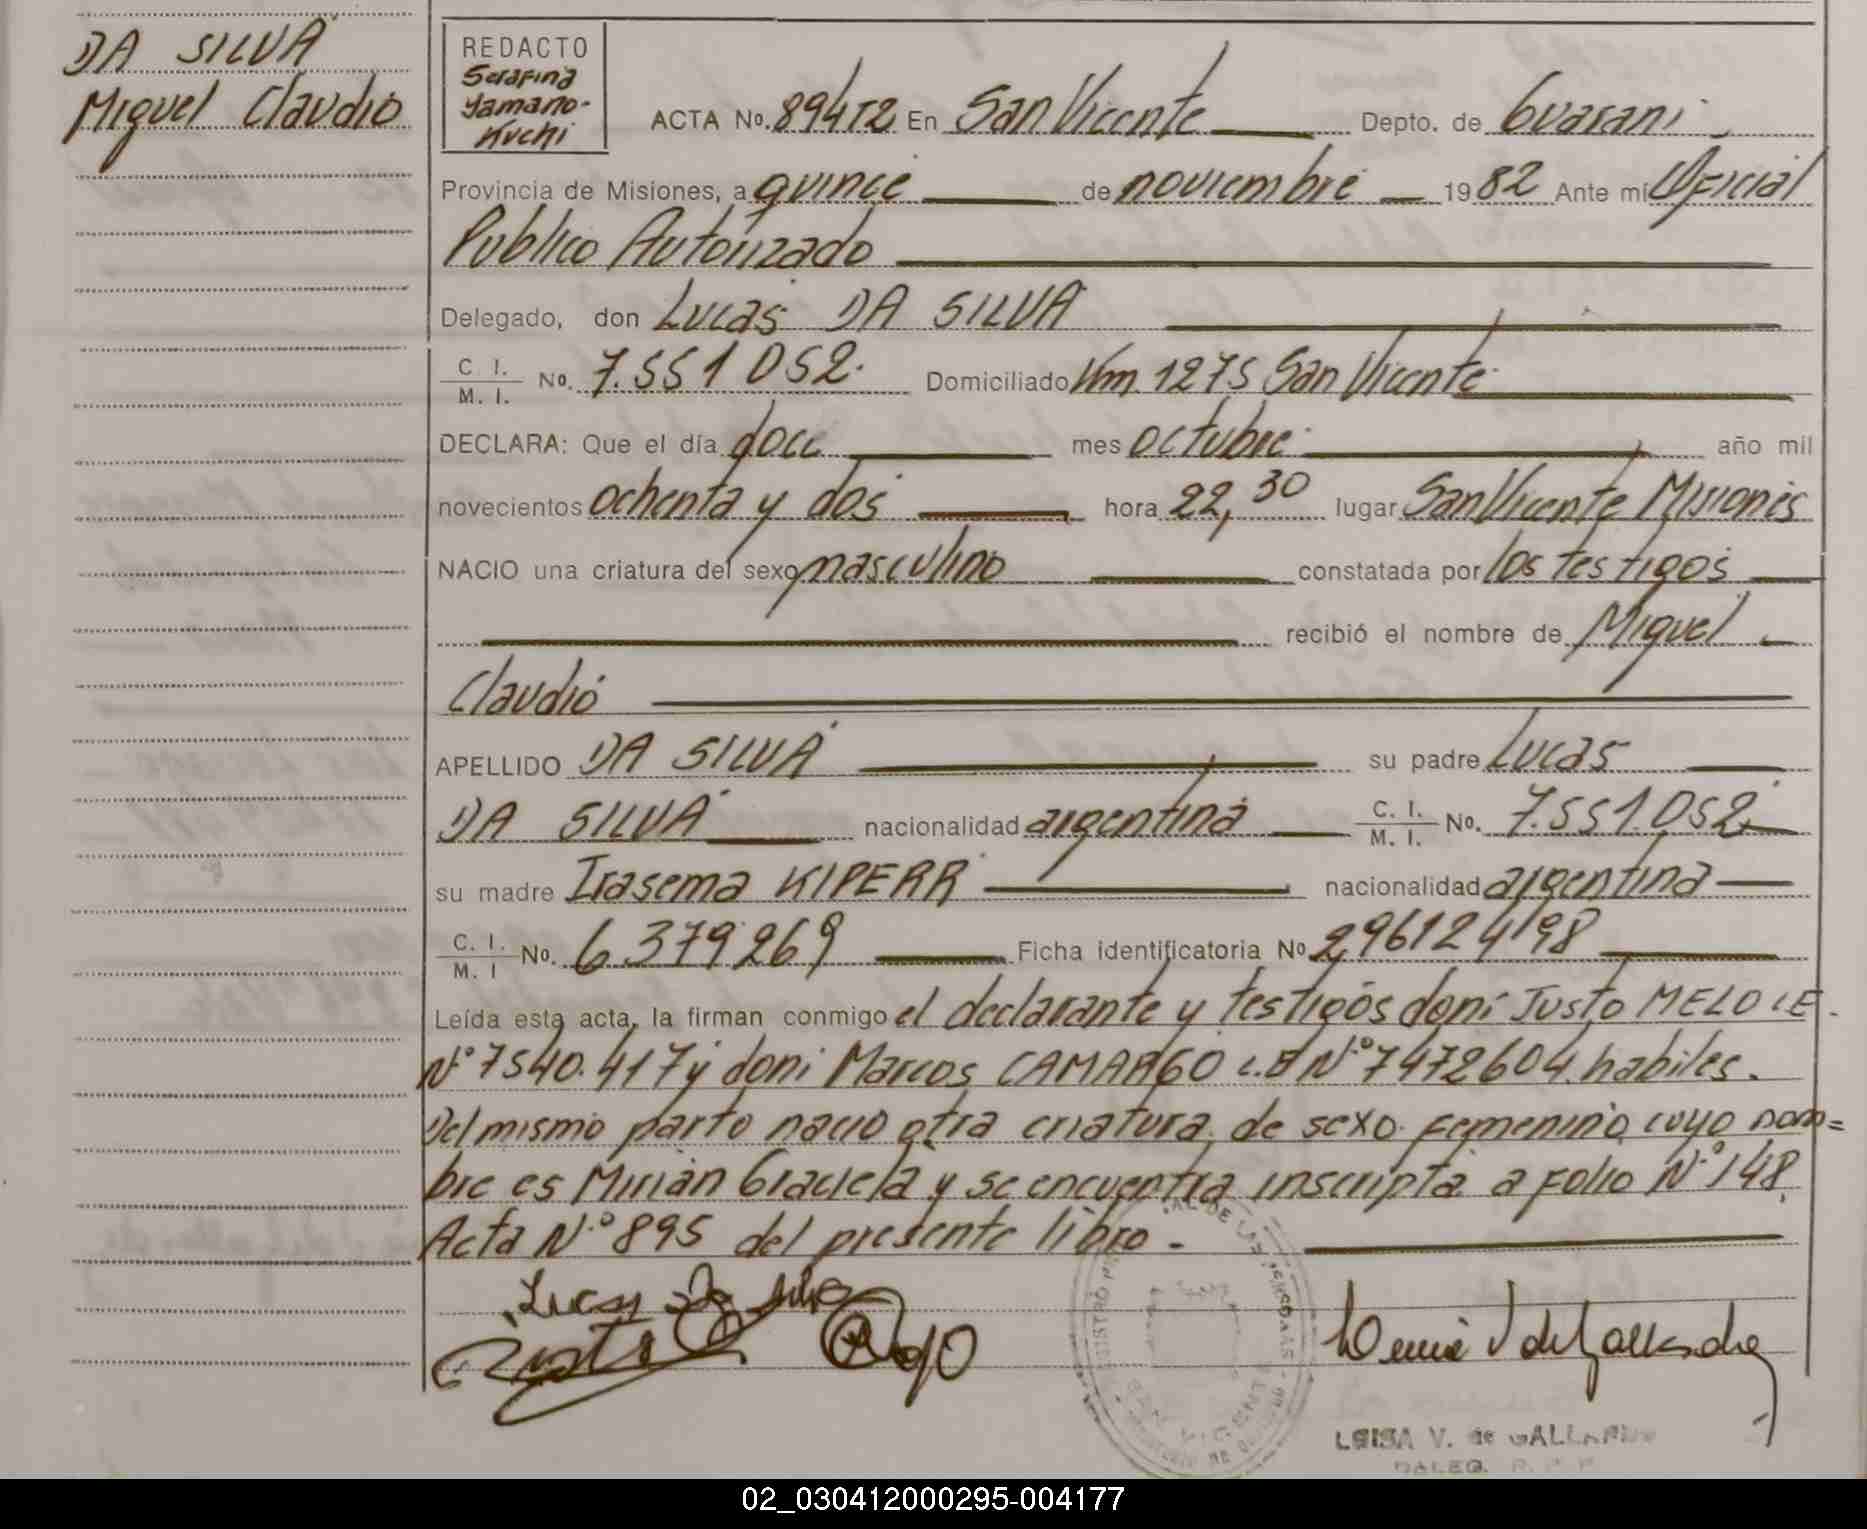 DA SILVA
Miguel Claudio
REDACTO
Serafina
Yamano-
Kuchi
ACTA No. 894T2 En San Vicente Depto. de Guarani
Provincia de Misiones, a quince de noviembre 1982 Ante mí Oficial
Publico Autorizado
Delegado, don Lucas DA SILVA
C. I. / M. I. No. 7.551.052. Domiciliado Km. 1275 San Vicente
DECLARA: Que el día doce mes octubre año mil
novecientos ochenta y dos hora 22,30 lugar San Vicente Misiones
NACIO una criatura del sexo masculino constatada por los testigos
recibió el nombre de Miguel
Claudio
APELLIDO DA SILVA su padre Lucas
DA SILVA nacionalidad argentina C. I. / M. I. No. 7.551.052.
su madre Irasema KIPERR nacionalidad argentina
C. I. / M. I No. 6.379269 Ficha identificatoria No 296124198
Leída esta acta, la firman conmigo el declarante y testigos doni Justo MELO LE.
Nº 7540.417 y doni Marcos CAMARGO L.E Nº 7472604. habiles.
Del mismo parto nacio otra criatura de sexo femenino cuyo nom=
bre es Mirian Graciela y se encuentra inscripta a folio Nº 148.
Acta Nº 895 del presente libro.-
Lucas Da Silva
Justo
SAN VICENTE
LEISA V. de GALLARDO
02_030412000295-004177